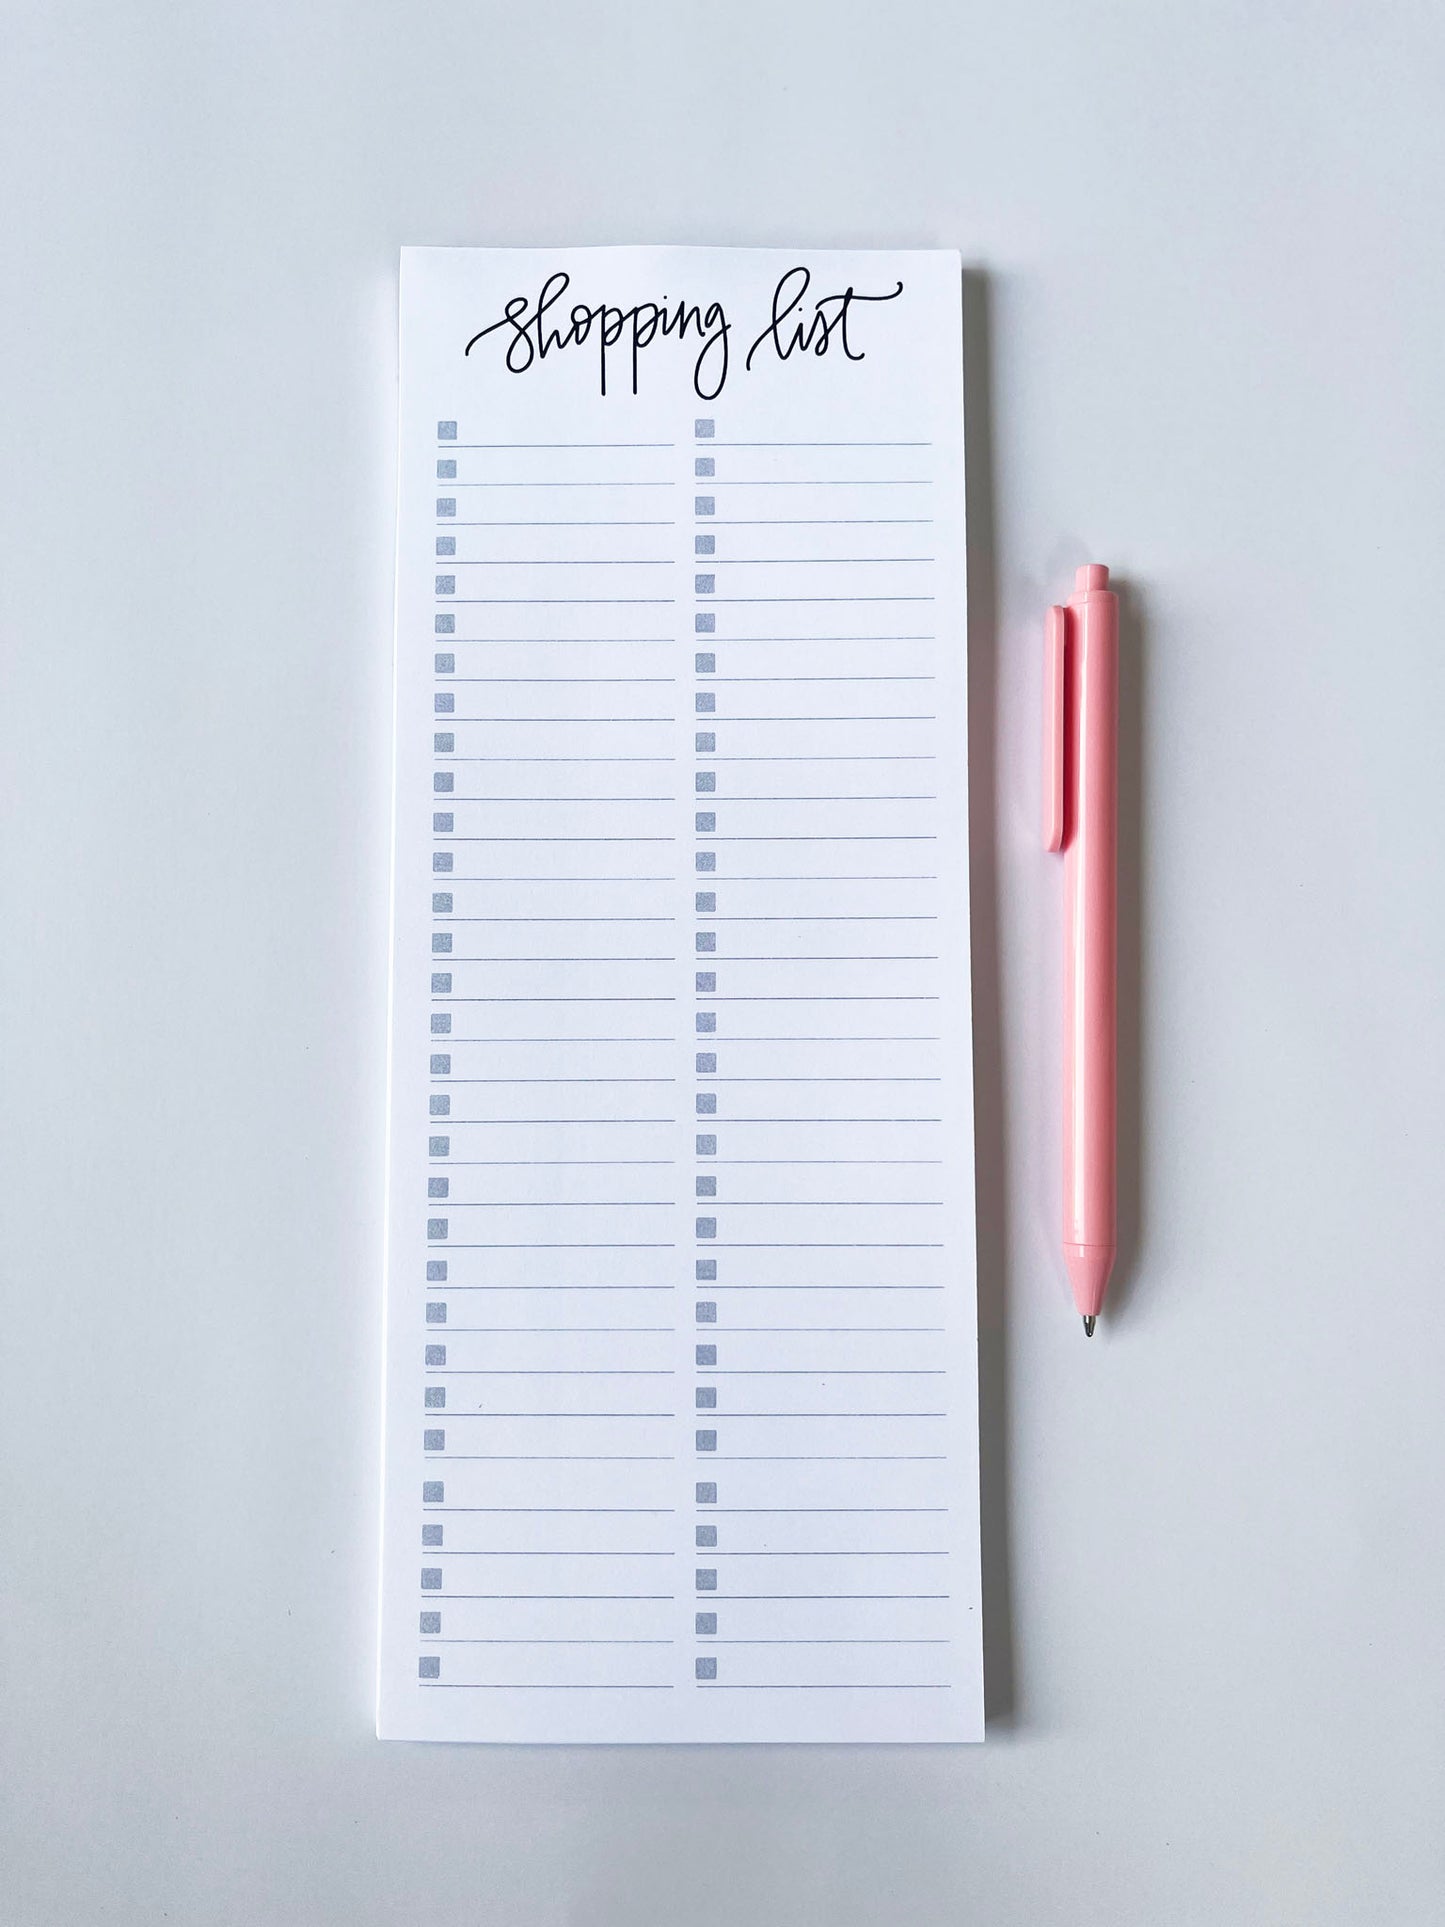 shopping list